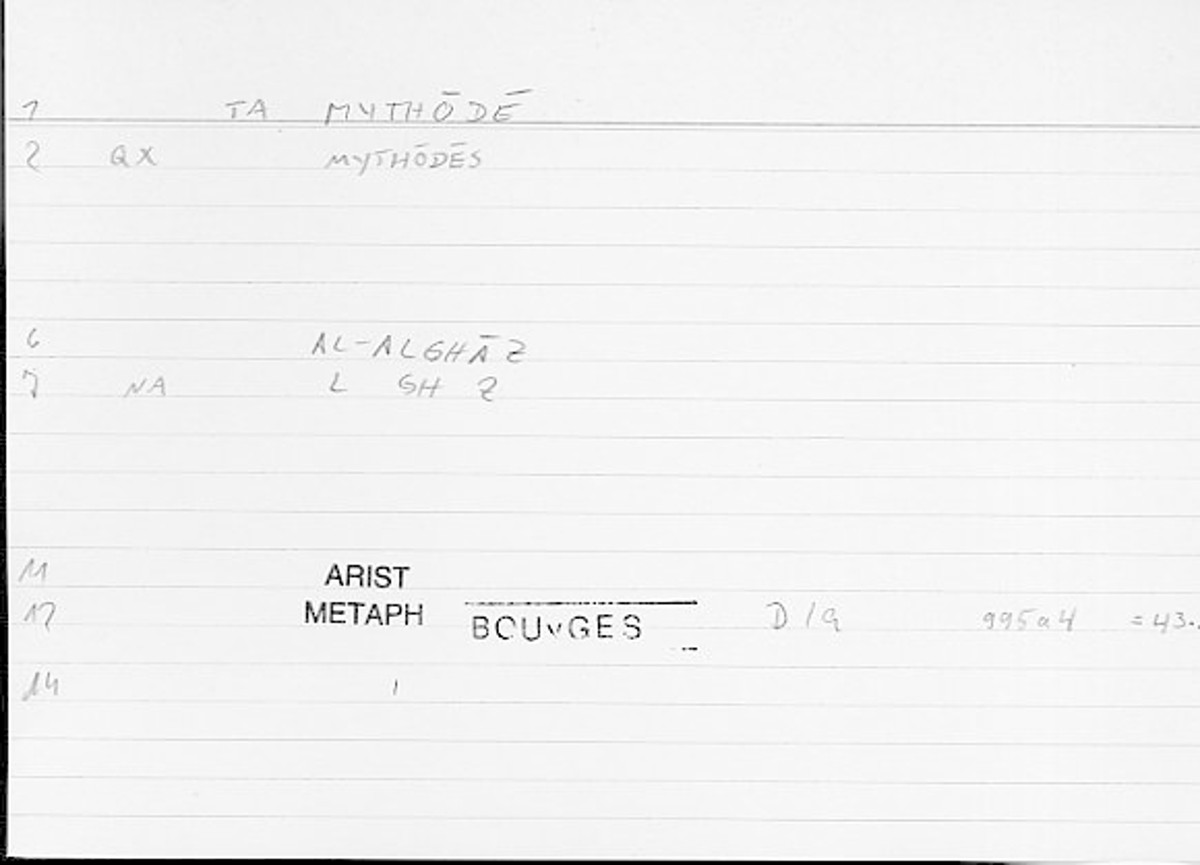 1 TA MYTHŌDĒ
2 QX MYTHŌDĒS
6 AL-ALGHĀZ
7 NA L GH Z
11 ARIST
12 METAPH BOUYGES D/G 995a4 =43.
14 1